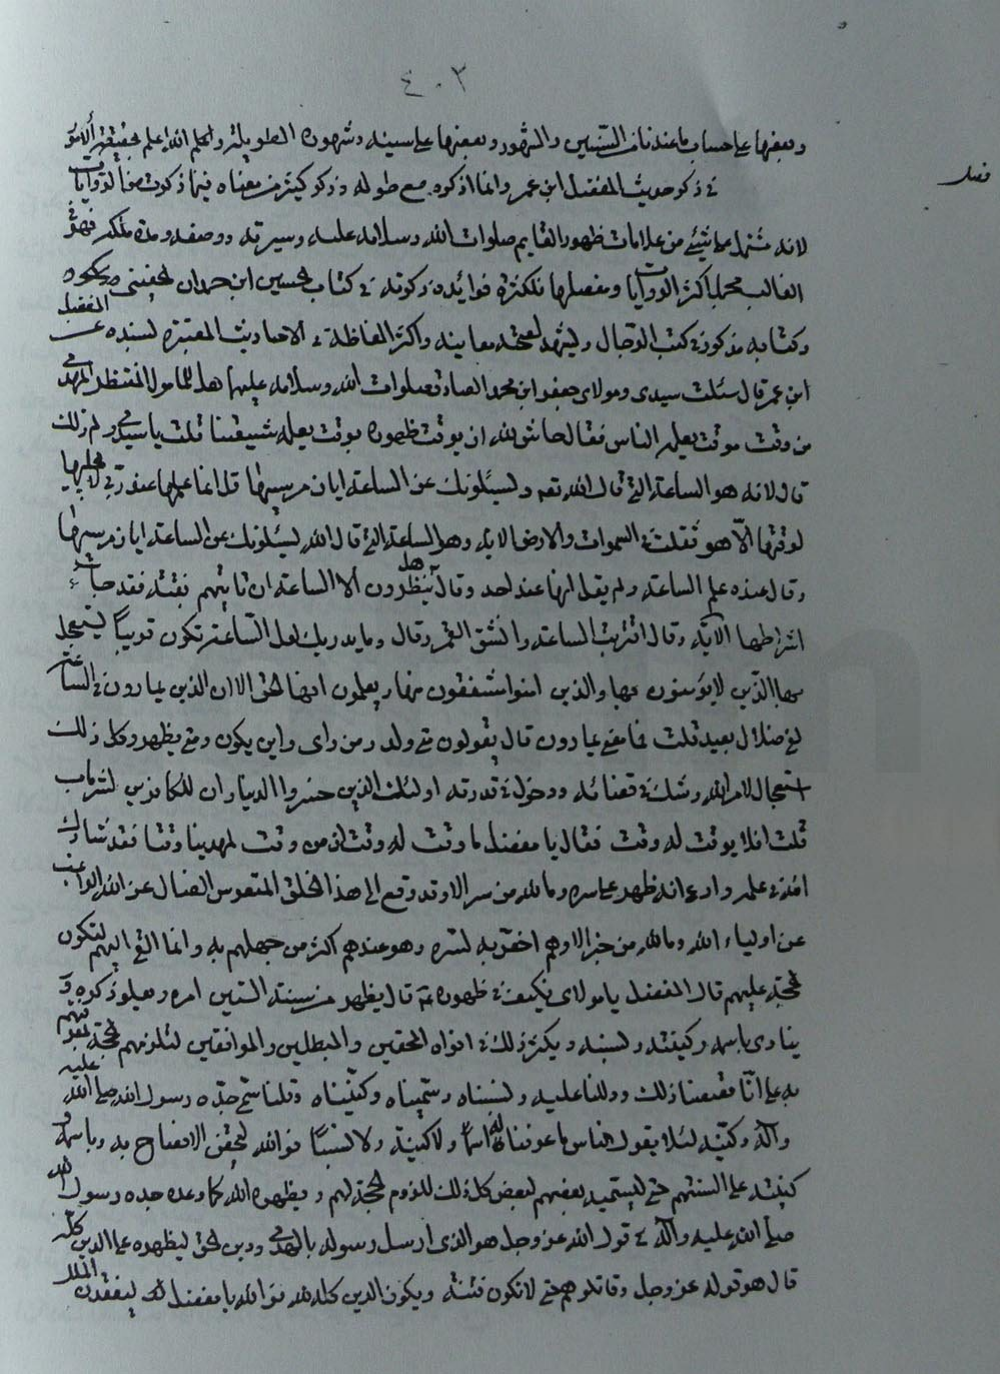 ٤٠٣
وبعضها على حساب ما عندنا من السنين والشهور وبعضها على سنينه وشهوره الطويلة والعلم الله اعلم بحقيقة الامور
فصل
في ذكر حديث المفضل ابن عمر وانما اذكره مع طوله وذكر كثير من معناه فيما ذكرت من الروايات
لانه مشتمل على شيء من علامات ظهور القايم صلوات الله وسلامه عليه وسيرته ووصفه ومدة ملكه فهو في
الغالب مجمل اكثر الروايات ومفصلها فلكثرة فوائده ذكرته في كتاب الحسين ابن حمدان الحضيني
وكتابه مذكور في كتب الرجال ويشهد لصحته معانيه واكثر الفاظه في الاحاديث المعتبرة بسنده عن المفضل
ابن عمر قال سئلت سيدي ومولاي جعفر ابن محمد الصادق صلوات الله وسلامه عليهما هل للمامول المنتظر المهدي
من وقت موقت يعلمه الناس فقال حاش لله ان يوقت ظهوره بوقت يعلمه شيعتنا قلت يا سيدي ولم ذلك
قال لانه هو الساعة التي قال الله تعه ويسئلونك عن الساعة ايان مرسيها قل انما علمها عند ربي لا يجليها
لوقتها الا هو ثقلت في السموات والارض الاية وهو الساعة التي قال الله يسئلونك عن الساعة ايان مرسيها
وقال عنده علم الساعة ولم يقل انها عند احد وقال هل ينظرون الا الساعة ان تاتيهم بغتة فقد جاء
اشراطها الاية وقال اقتربت الساعة وانشق القمر وقال وما يدريك لعل الساعة تكون قريباً يستعجل
بها الذين لا يؤمنون بها والذين امنوا مشفقون منها ويعلمون انها الحق الا ان الذين يمارون في الساعة
لفي ضلال بعيد قلت فما معنى يمارون قال يقولون متى ولد ومن راى واين يكون ومتى يظهر وكل ذلك
استعجال لامر الله وشك في قضائه ودخول في قدرته اولئك الذين خسروا الدنيا وان للكافرين لشر ماب
قلت افلا يوقت له وقت فقال يا مفضل ما وقت له وقت ان من وقت لمهدينا وقتا فقد شارك
الله في علمه وادعى انه ظهر على سره وما لله من سر الا وقد وقع الى هذا الخلق المنعوس الضال عن الله الراغب
عن اولياء الله وما لله من خبر الا وهم اخص به لسره وهو عندهم اكثر من جهلهم به وانما القي اليهم لتكون
حجة عليهم قال المفضل يا مولاي فكيف في ظهوره عه قال يظهر من سنة الستين امره ويعلو ذكره و
ينادى باسمه وكنيته ونسبه ويكثر ذلك في افواه المحقين والمبطلين والموافقين لتلزمهم الحجة لمعرفتهم
به على انا قصصنا ذلك ودللنا عليه ونسبناه وسميناه وكنيناه وقلنا سمي جده رسول الله صلى الله عليه
واله وكنيه لئلا يقول الناس ما عرفنا له اسماً ولا كنية ولا نسباً فوالله ليحقن الافصاح به وباسمه و
كنيته على السنتهم حتى ليسميه بعضهم لبعض كل ذلك للزوم الحجة لهم ويظهره الله كما وعده جده رسول الله
صلى الله عليه واله في قول الله عز وجل هو الذي ارسل رسوله بالهدى ودين الحق ليظهره على الدين كله
قال هو قوله عز وجل وقاتلوهم حتى لا تكون فتنة ويكون الدين كله لله فوالله يا مفضل ليفقدن الملل